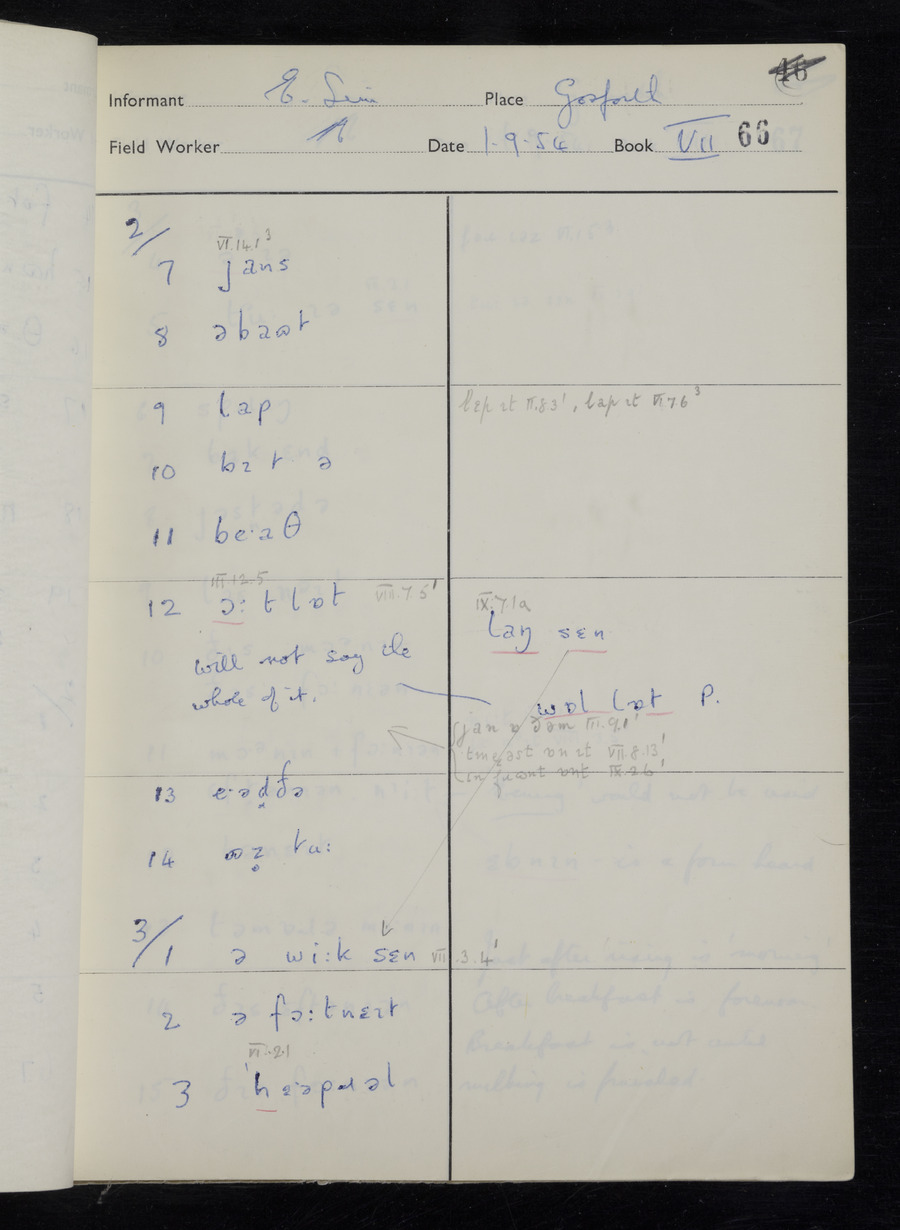 46
Informant E. Sim Place Gosforth
Field Worker Date 1.9.54 Book VII 66
2/
VI.14.1³
7 jans
8 əbaʊt
9 lap
lɛp ɪt II.8.3¹, lap ɪt VI.7.6³
10 bɪt ə
11 be·əθ
III.12.5
12 ɔ: t lɒt VIII.7.5¹
IX.7.1a
laŋ sɛn
will not say the
whole of it.
wɒl lɒt P.
jan ɒ ðəm III.9.1¹
ɒn ɪt VII.8.13¹
IX.2.6¹
13 e·ədðə
14 tu:
3/
1 ə wi:k sɛn VII.3.4¹
2 ə fɔ:tnɛɪt
VI.2.1
3